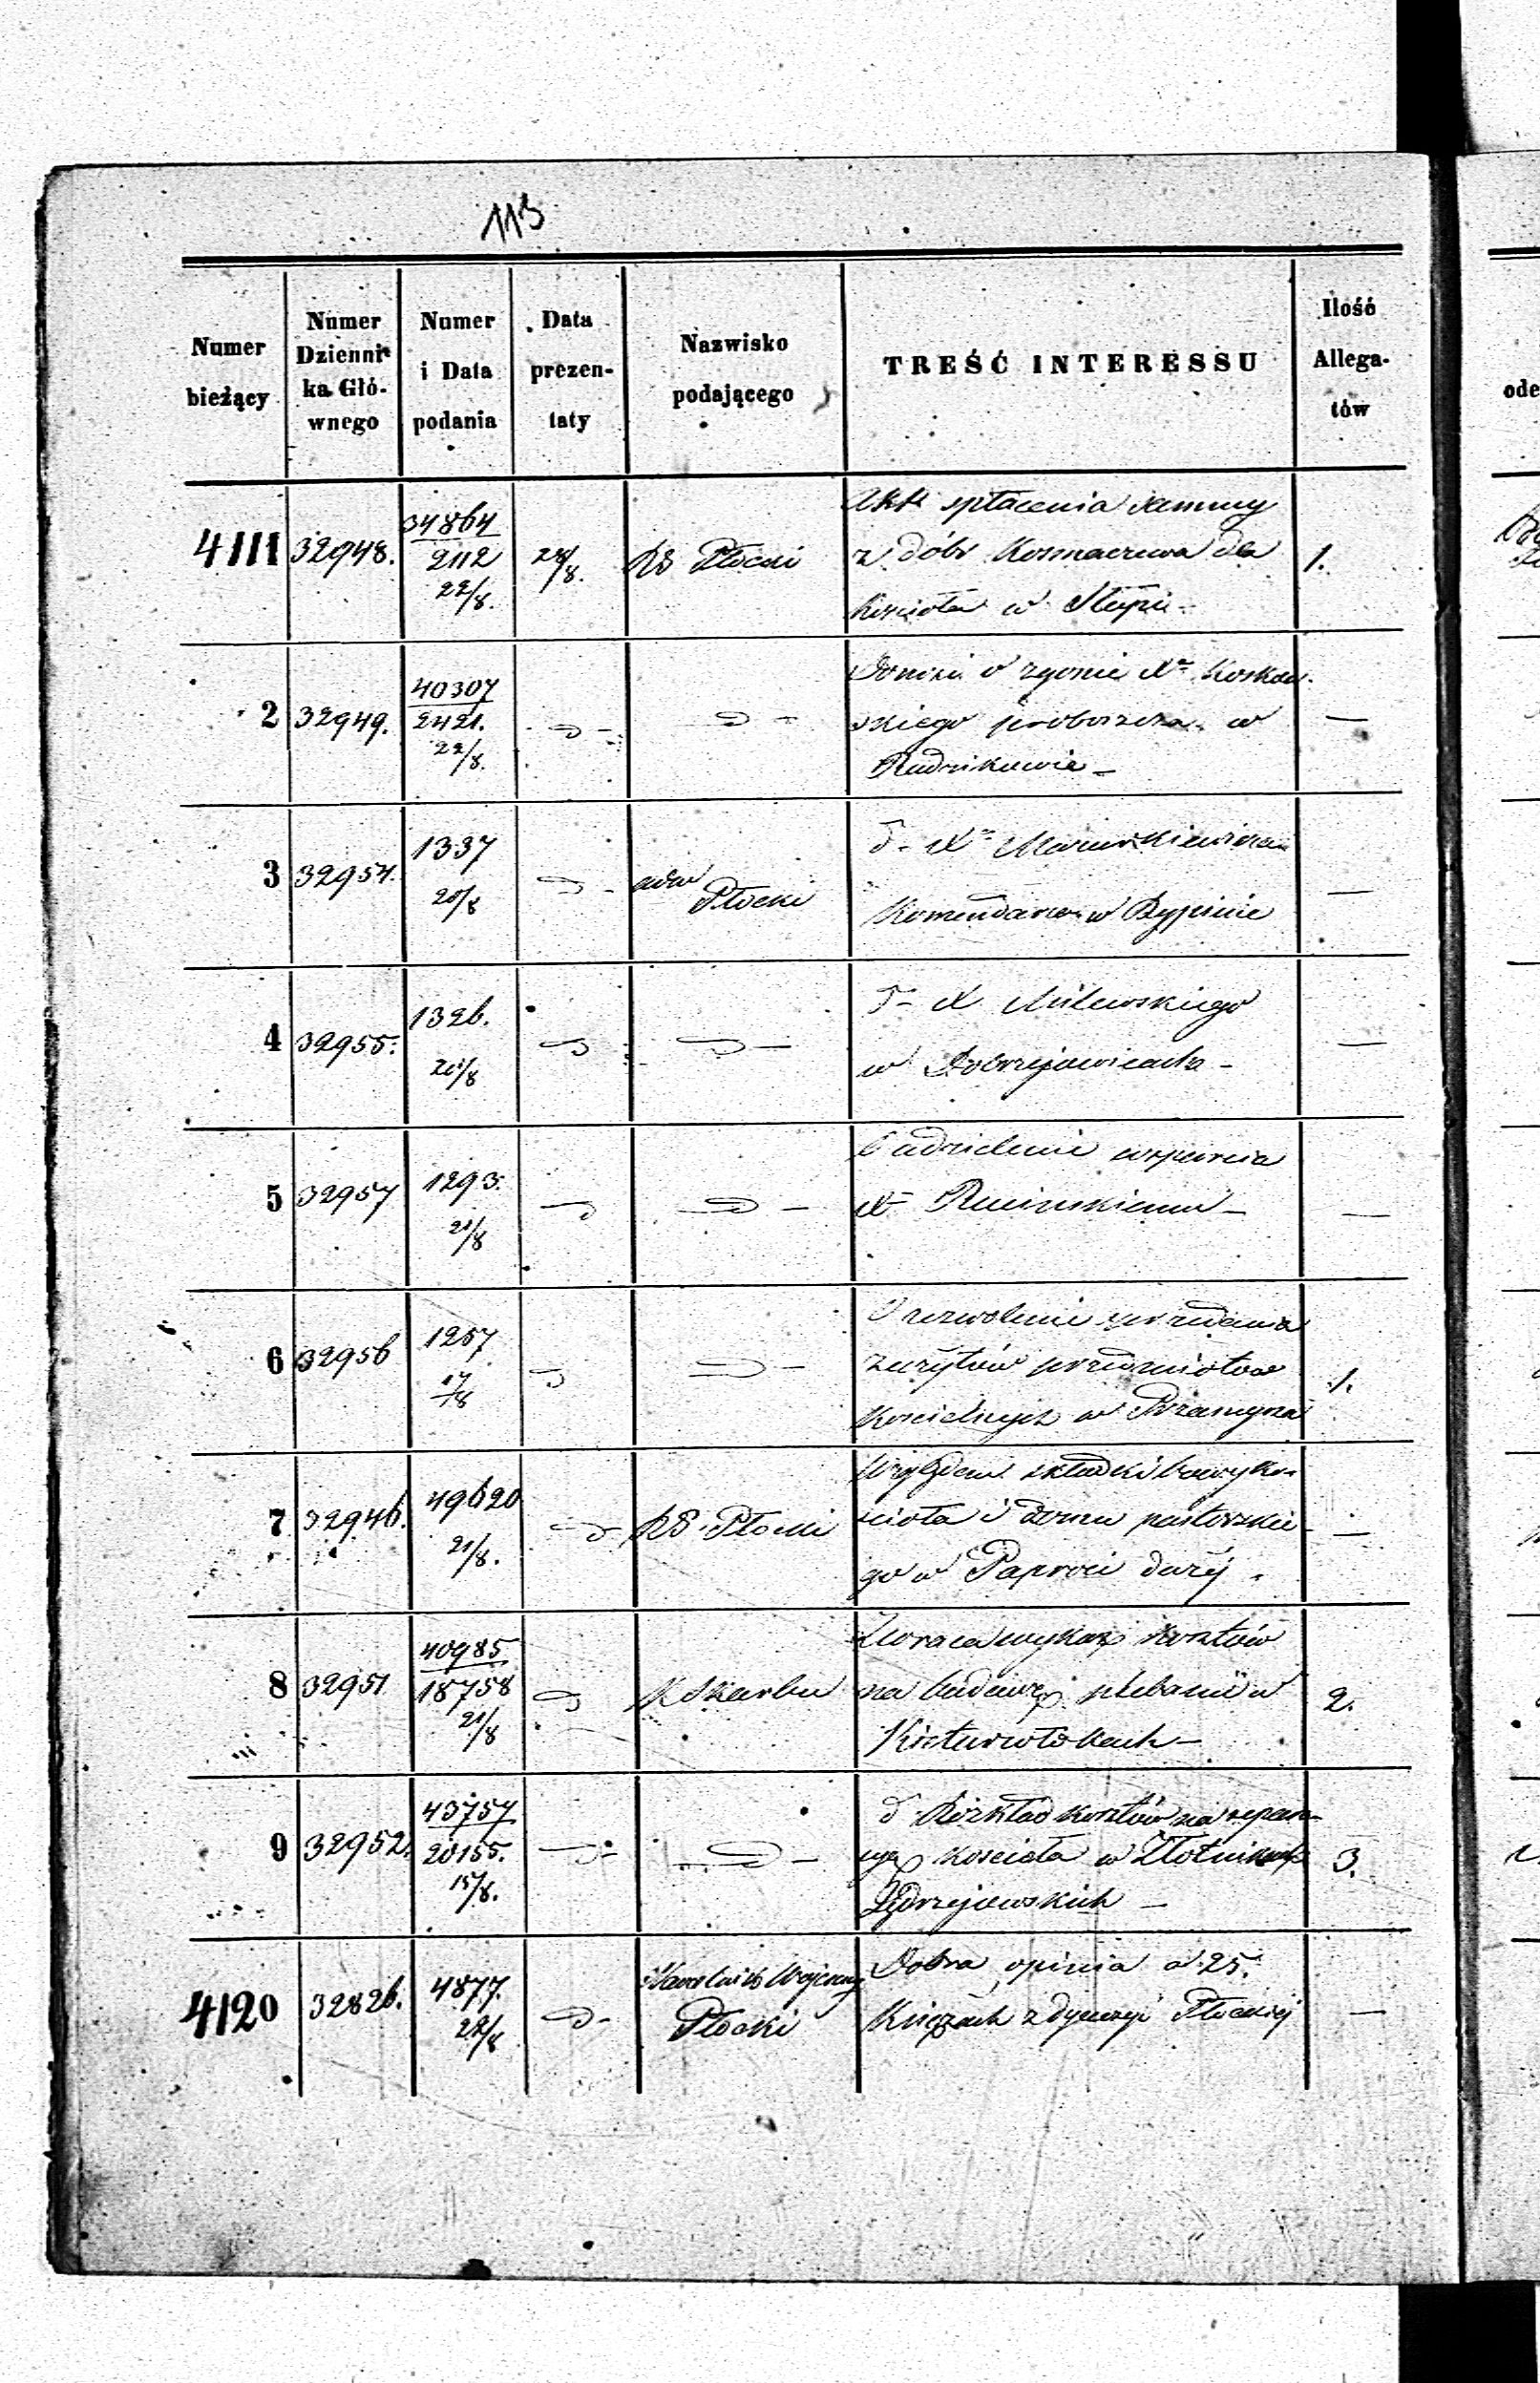 113
Numer bieżący
Numer Dziennika Głównego
Numer i Data podania
Data prezentaty
Nazwisko podającego
TREŚĆ INTERESSU
Ilość Allegatów
4111 32948. 34864 2112 22/8. 24/8. RG Płocki 1.
Akt spłacenia summy
z dóbr Kosmaczewa dla
kościoła w Słupi
2 32949. 40307 2421. 22/8.
Donosi o zgonie Xa Koskow-
skiego proboszcza w
Radzikowie
3 32954. 1337 20/8 Płocki
d- Xa
Komendarza w Rypinie
4 32955. 1326. 20/8
d- X Milewskiego
w Dobrzejowicach
5 32957 1293. 21/8
O udzielenie wsparcia
X Rucinskiemu
6 32956 1257 17/8 1.
O zezwolenie sprzedania
zużytów przedmiotów
kościelnych w Przasnyszu
7 32946. 49620 21/8. RG Płocki
Względem składki
ścioła i domu pastorskie-
go w Paproci dużej
8 32951 40985 18758 21/8 K Skarbu 2.
Zwraca wykaz kosztów
na budowę plebanii w
9 32952. 43757 20155. 15/8. 3.
d- Rozkład kosztów na repara-
cyę kościoła w Złotnikach
Jędrzejowskich
4120 32826. 4877. 22/8 Naczelnik Wojenny Płocki
Dobra opinia o 25.
Księżach z dyecezyi Płockiej